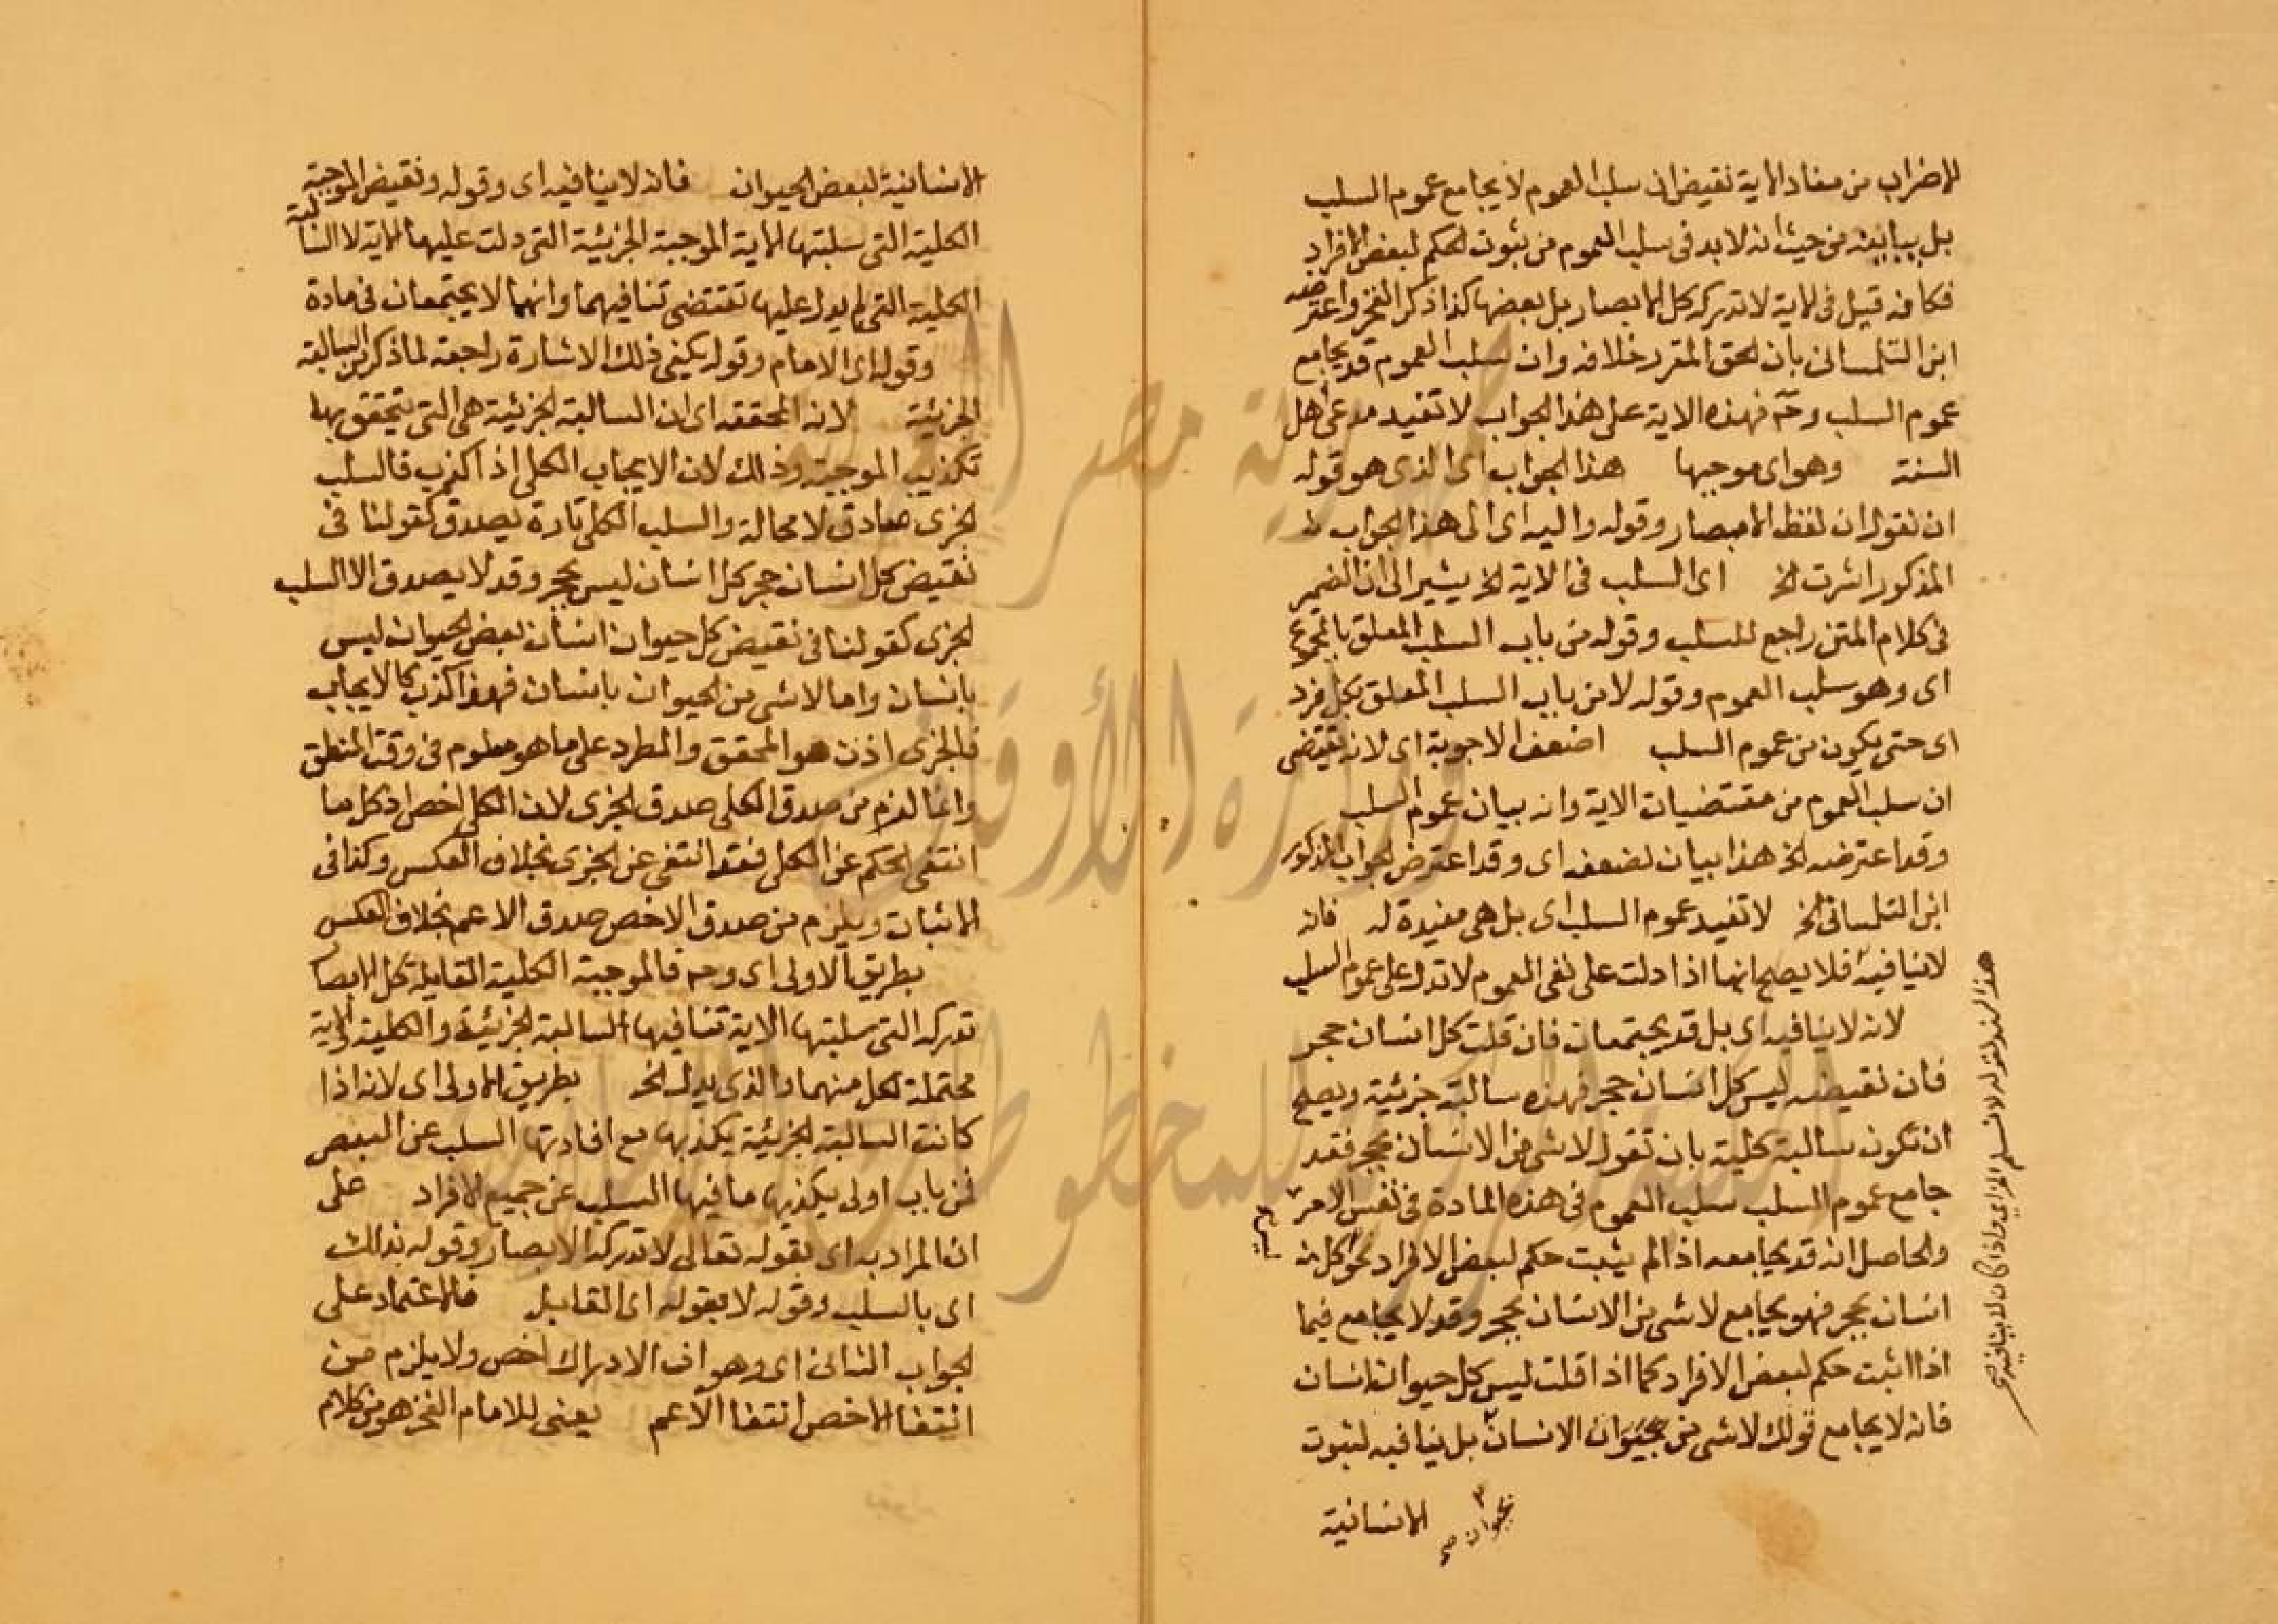 للاضراب من مفاد الاية نقيض ان سلب العموم لا يجامع عموم السلب
بل يباينه من حيث انه لا بد في سلب العموم من ثبوت الحكم لبعض الافراد
فكانه قيل في الاية لا تدركه كل الابصار بل بعضها كذا ذكر الفخر واعترضه
ابن التلمساني بان الحق المقرر خلافه وان سلب العموم قد يجامع
عموم السلب وحـ فهذه الاية على هذا الجواب لا تفيد مدعى اهل
السنة وهو اى موجبها هذا الجواب اى الذى هو قوله
ان نقول ان لفظ الابصار وقوله واليه اى الى هذا الجواب
المذكور اشرت الخ اى السلب فى الاية الخ يشير الى ان الضمير
فى كلام المتن راجع للسلب وقوله من باب السلب المعلق بالمجموع
اى وهو سلب العموم وقوله لا من باب السلب المعلق بكل فرد
اى حتى يكون من عموم السلب اضعف الاجوبة اى لانه يقتضى
ان سلب العموم من مقتضيات الاية وانه بيان عموم السلب
وقد اعترضه الخ هذا بيان لضعفه اى وقد اعترض الجواب المذكور
ابن التلمسانى الخ لا تفيد عموم السلب اى بل هى مفيدة له فانه
لا ينافيه فلا يصح انها اذا دلت على نفى العموم لا تدل على عموم السلب
لانه لا ينافيه اى بل قد يجتمعان فان قلت كل انسان حجر
فان نقيضه ليس كل انسان حجر فهذه سالبة جزئية ويصح
ان تكون سالبة كلية بان تقول لا شى من الانسان بحجر فقد
جامع عموم السلب سلب العموم فى هذه المادة فى نفس الامر
والحاصل انه قد يجامعه اذا لم يثبت حكم لبعض الافراد نحو كل
انسان بحجر فهو يجامع لا شى من الانسان بحجر وقد لا يجامع فيما
اذا اثبت حكم لبعض الافراد كما اذا قلت ليس كل حيوان انسان
فانه لا يجامع قولك لا شى من الانسان بل ينافيه لثبوت
بحيوان صح
الانسانية
ليس
هذا لقوله لا نسلم واذا كان لا ينافيه
الانسانية لبعض الحيوان فانه لا ينافيه اى وقوله ونقيض الموجبة
الكلية التى سلبتها الاية الموجبة الجزئية التى دلت عليها الاية لا السالبة
الكلية التى لم يدل عليها تقتضى تنافيهما وانهما لا يجتمعان فى مادة
وقوله اى الامام وقوله يكفى ذلك الاشارة راجعة لما ذكر من السالبة
الجزئية لانه المحققه اى ان السالبة الجزئية هى التى يتحقق بها
تكذيب الموجبة وذلك لان الايجاب الكلى اذا كذب فالسلب
الجزى صادق لا محالة والسلب الكلى تارة يصدق كقولنا فى
نقيض كل انسان حجر كل انسان ليس بحجر وقد لا يصدق الا السلب
الجزى كقولنا فى نقيض كل حيوان انسان بعض الحيوان ليس
بانسان واما لا شى من الحيوان بانسان فهذا كذب كالايجاب
فالجزى اذن هو المحقق والمطرد على ما هو معلوم فى وقت المنطق
وانما لزم من صدق الكلى صدق الجزى لان الكلى اخص اذ كل ما
انتفى الحكم عن الكلى فقد انتفى عن الجزى بخلاف العكس وكذا فى
الاثبات ويلزم من صدق الاخص صدق الاعم بخلاف العكس
بطريق الاولى اى وحـ فالموجبة الكلية القايلة كل الابصار
تدركه التى سلبتها الاية تنافيها السالبة الجزئية والكلية والاية
محتملة لكل منهما والذى يدل الخ بطريق الاولى اى لانه اذا
كانت السالبة الجزئية يكذبها مع افادتها السلب عن البعض
فمن باب اولى يكذبها ما فيها السلب عن جميع الافراد على
ان المراد به اى بقوله تعالى لا تدركه الابصار وقوله بذلك
اى بالسلب وقوله لا بقوله اى القايل فالاعتماد على
الجواب الثانى اى وهو ان الادراك اخص ولا يلزم من
انتفا الاخص انتفا الاعم يعنى للامام الفخر هو من كلام
جمهورية مصر العربية
وزارة الأوقاف
المكتبة المركزية للمخطوطات الإسلامية